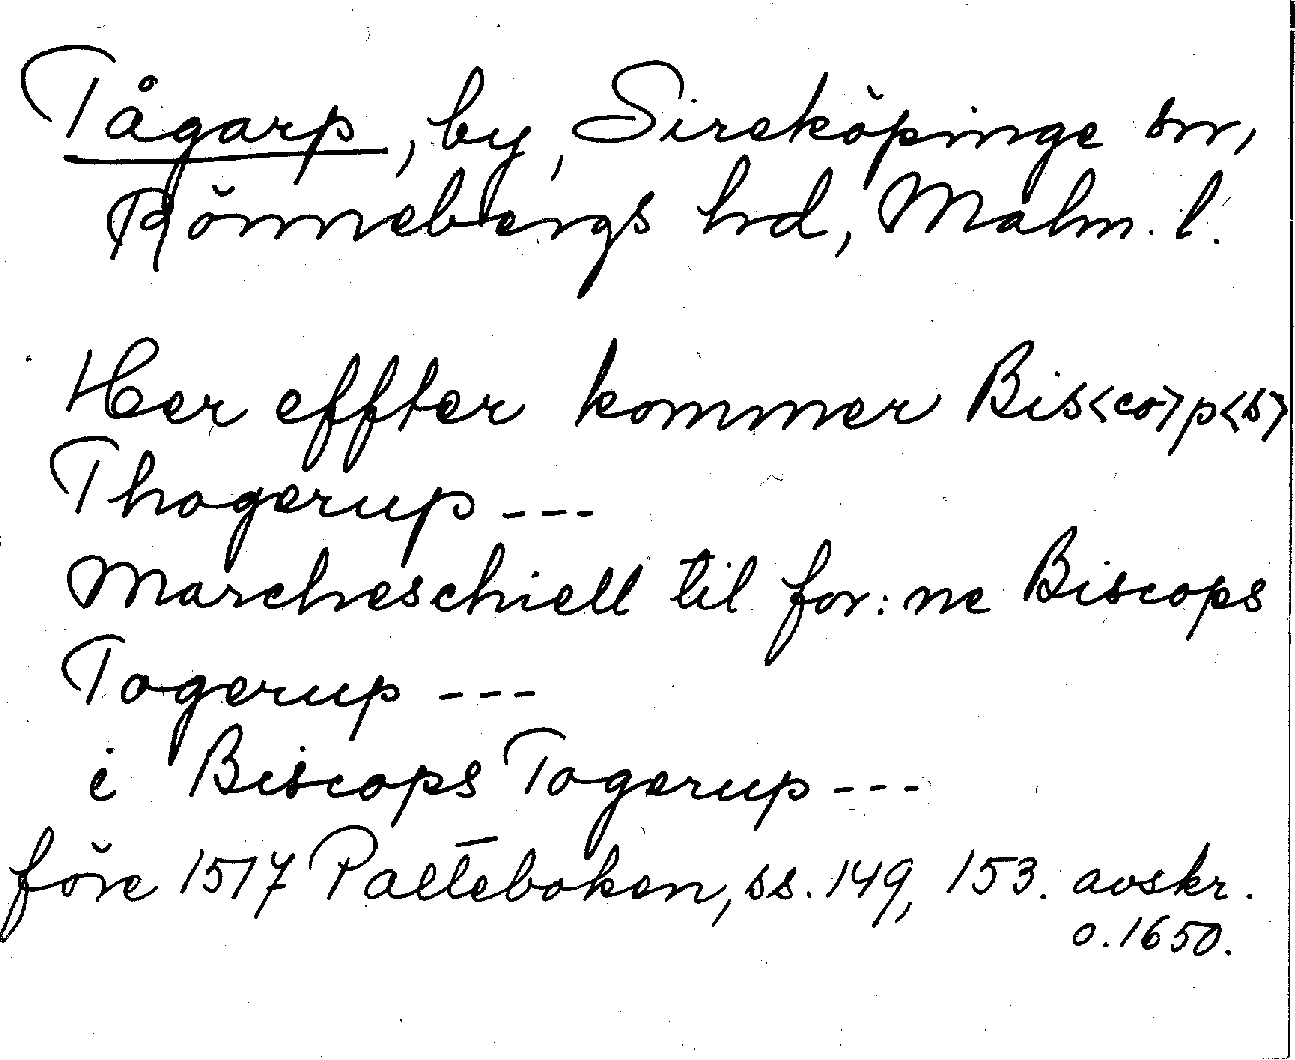 Tågarp, by, Sireköpinge sn,
Rönnebergs hd, Malm. l.
Her effter kommer Bis<co>p<s>
Thogerup ---
Marcheschiell til for:ne Biscops
Togerup ---
i Biscops Togerup ---
före 1517 Palteboken, ss. 149, 153. avskr.
o. 1650.